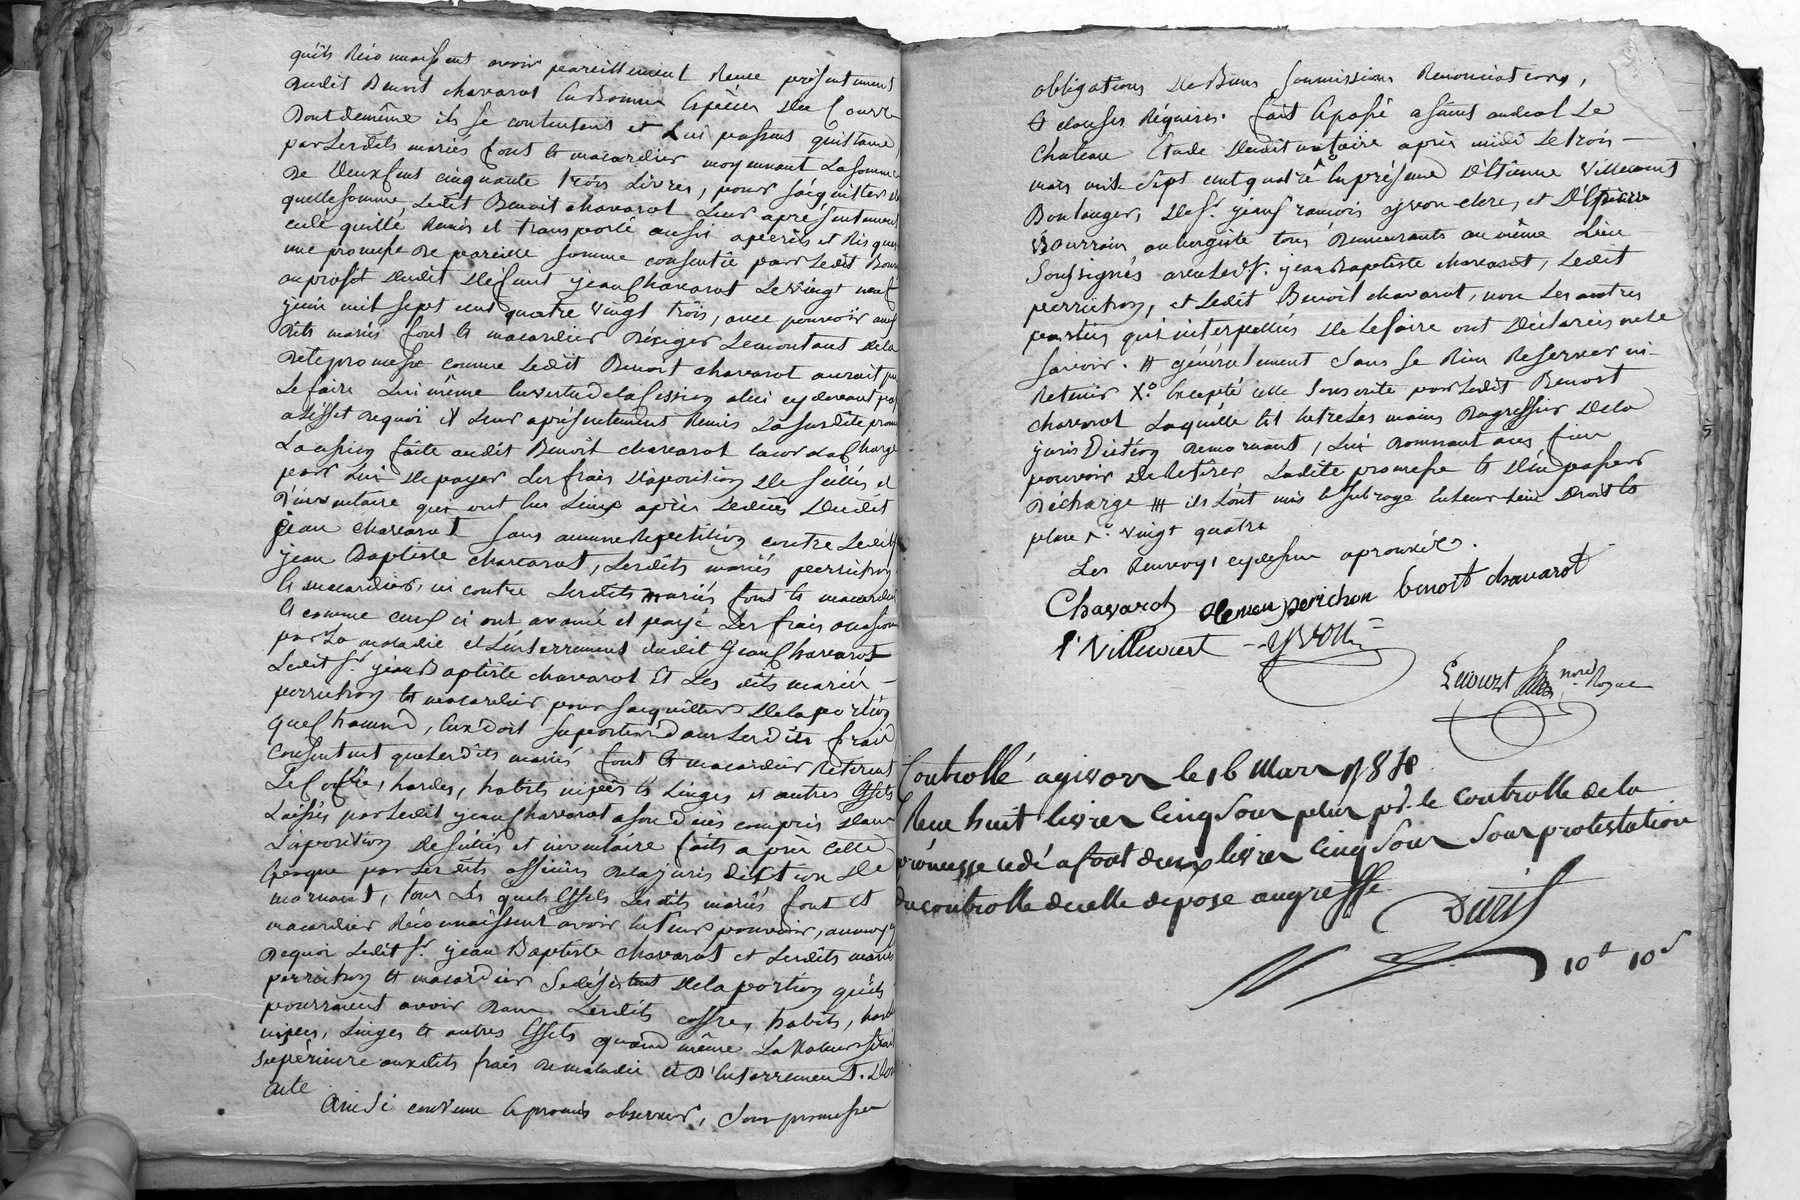 qu'ils reconnoissent avoir pareillement Reçue présentement
audit Benoit chavarot en Bonnes Espèces de Cours
Dont demême ils se contentent et lui passent quittance
par lesdits mariés font & macardier moyennant la somme
De Deux cent cinquante trois Livres, pour s'aquitter de
quelle somme ledit Benoit chavarot Leur a présentement
cédé quitté Remis et transporté aussi a périls et Risques
une promesse De pareille somme consentie par ledit
au profit dudit deffunt jean Chavarot Le vingt neuf
juin mil sept cent quatre vingt trois, avec pouvoir aus
dits mariés font & macardier D'exiger le montant dela
dite promesse comme ledit Benoit chavarot auroit pu
Le faire Lui même en vertu de la Cession a lui cydevant
a l'effet dequoi il leur a présentement Remis La susdite
La cession faite audit Benoit chavarot charge
par Lui De payer Les frais d'aposition de scellés et
D'inventaire qui ont eu Lieux après Le décès dudit
jean chavarot sans aucune Repetition contre Ledit
jean Baptiste chavarot, Lesdits mariés perrichon
& macardier, ni contre Lesdits mariés font & macardier
& comme ceux ci ont avancé et payé Les frais
par La maladie et l'enterrement dudit jean Chavarot
Ledit Sr. jean Baptiste chavarot Et Les dits mariés
perrichon & macardier pour s'aquitter De la portion
que chacun D'eux doit suporter dans Lesdits frais
Consentent que Lesdits mariés font & macardier Retirent
Le coffre, hardes, habits nipées & Linges et autres Effets
Laissés par ledit jean Chavarot a son décès compris dans
L'aposition De scellés et inventaire faits a cette
Epoque par Lesdits officiers De la jurisdiction De
mornant, tous Les quels Effets Lesdits mariés font et
macardier Reconnaissent avoir en leur pouvoir, au moyen
Dequoi Ledit Sr. jean Baptiste chavarot et Lesdits mariés
perrichon & macardier se désistent De la portion qu'ils
pourroient avoir Dans Lesdits coffre, habits,
nipées, Linges & autres Effets quand même La Valeur seroit
supérieure auxdits frais De maladie et D'enterrement. Dont
acte
Ainsi convenu & promis observer, sous promesses
obligations De Biens soumissions Renonciations,
& clauses Requises. fait & passé a saint andéol Le
Chateau Etude dudit notaire après midi Le trois
mars mil sept cent quatre En présence D'Etienne Villecourt
Boulanger, de Sr. jean françois yvon clerc, et
aubergiste tous Demeurants au même Lieu
Soussignés avec Ledit Sr. jean Baptiste chavarot, Ledit
perrichon, et Ledit Benoit chavarot, non Les autres
parties qui interpellées de Le faire ont Déclarées ne le
savoir. # généralement sans se Rien Reserver ni
Retenir X.o Excepté celle souscrite par Ledit Benoit
chavarot Laquelle est entre Les mains Du greffier De la
jurisdiction De mornant, Lui Donnant aux fins
pouvoir De Retirer Ladite promesse & D'en passer
Décharge ## ils L'ont mis & subrogé en leur Lieu Droit &
place vingt quatre
Les Renvoys cydessus aprouvés.
Chavarot perichon benoit chavarot
Villecourt yvon
nore Royal
Controllé a givors le 16 Mars
Reçu huit livres Cinq Sous plus pr. le Controlle de la
prômesse cedé a font deux livres Cinq Sous Sous protestation
du controlle decelle déposé augreffe
10s 10d